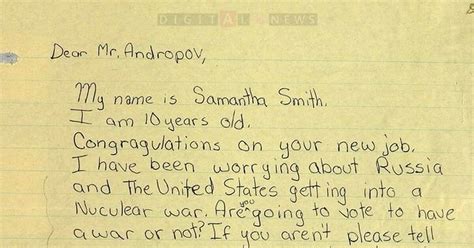 DIGITAL NEWS
Dear Mr. Andropov,
My name is Samantha Smith.
I am 10 years old.
Congragulations on your new job.
I have been worrying about Russia
and The United States getting into a
Nuculear war. Are you going to vote to have
a war or not? If you aren't please tell